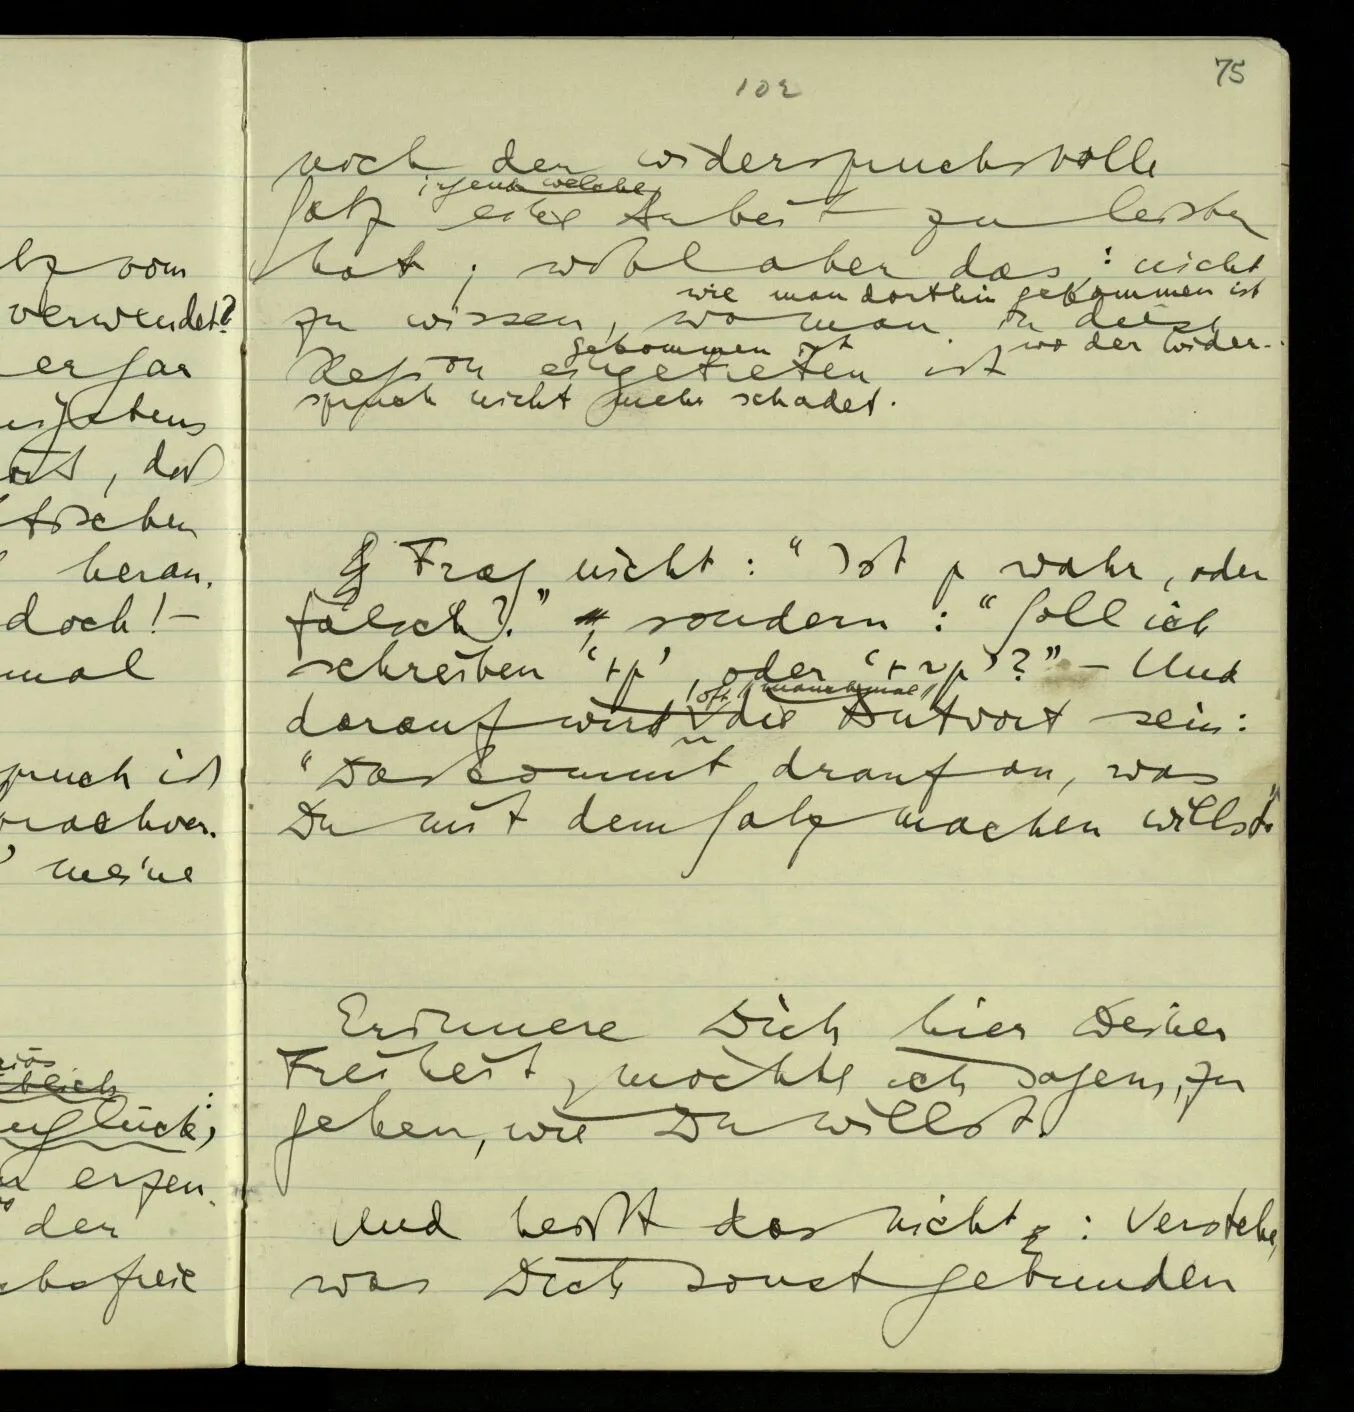 tz vom
verwendet?
er gar
, daß
tischen
heran.
doch! –
mal
pruch ist
prachver-
' meine
riös
üblich :
nglück;
erzeu-
der
chsfreie
75
102
noch der widerspruchsvolle
irgend welche
Satz eine Arbeit zu leisten
hat; wohl aber das: nicht
wie man dorthin gekommen ist
zu wissen, wo man in diese
gekommen ist wo der Wider-
Region eingetreten ist
spruch nicht mehr schadet.
§ Frag nicht: “Ist p wahr, oder
falsch?.” sondern: “Soll ich
schreiben ‘⊢p’, oder ‘⊢~p’?” – Und
oft // manchmal //
darauf wird die Antwort sein:
“Das kommt drauf an, was
Du mit dem Satz machen willst.”
Erinnere Dich hier Deiner
Freiheit, möchte ich sagen, zu
gehen, wie Du willst.
Und heißt das nicht: Verstehe,
was Dich sonst gebunden